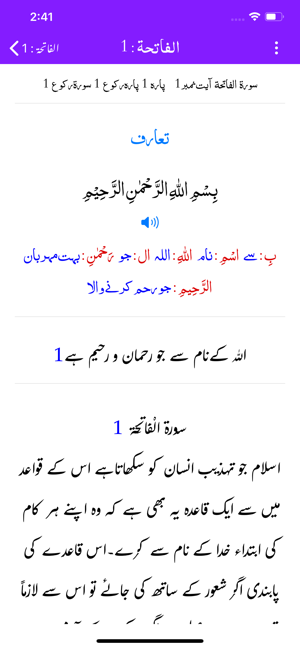 2:41
الفاتحة : 1
الفاتحة : 1
سورۃ الفاتحۃ آیت نمبر 1 پارہ 1 پارہ رکوع 1 سورۃ رکوع 1
تعارف
بِسْمِ اللّٰهِ الرَّحْمٰنِ الرَّحِيْمِ
بِ : سے اسْمِ : نام اللّٰهِ : اللہ ال : جو رَحْمٰنِ : بہت مہربان
الرَّحِيْمِ : جو رحم کرنے والا
اللہ کے نام سے جو رحمان و رحیم ہے 1
سورۃ الْفَاتِحَۃ 1
اسلام جو تہذیب انسان کو سکھاتا ہے اس کے قواعد
میں سے ایک قاعدہ یہ بھی ہے کہ وہ اپنے ہر کام
کی ابتداء خدا کے نام سے کرے۔ اس قاعدے کی
پابندی اگر شعور کے ساتھ کی جائے تو اس سے لازماً